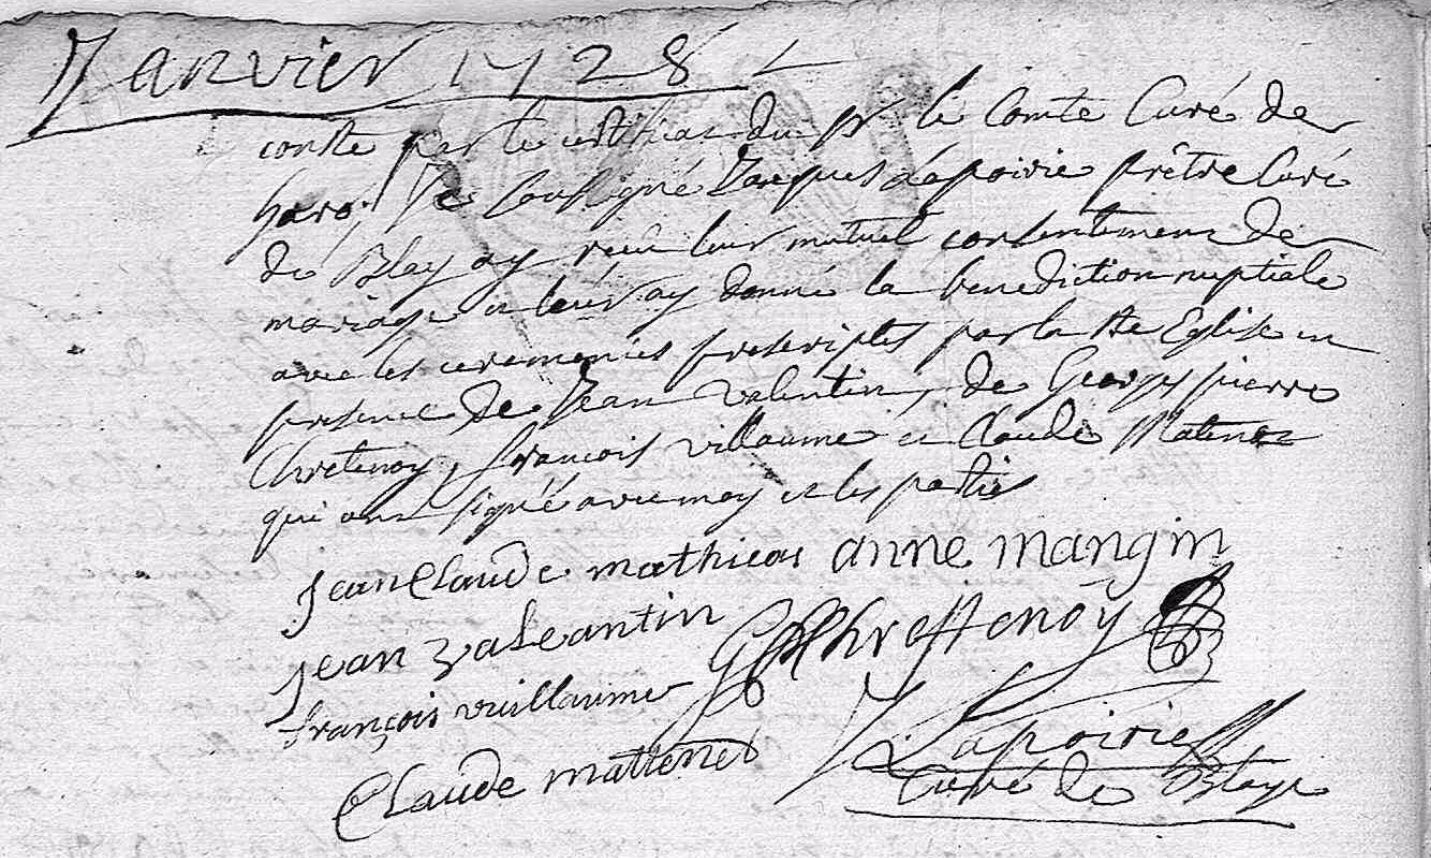 Janvier 1728
conste par le certificat du sr le Comte Curé de
harol, Je soussigné Jacques Lapoirie prêtre Curé
de Blaye ay receu leur mutuel consentement de
mariage et leur ay donné la benediction nuptiale
avec les ceremonies prescriptes par la Ste Eglise en
presence de Jean valentin, de George pierre
Chretenoy, françois villaume et Claude Matenez
qui ont signé avec moy et les parties
jean Claude mathieas anne mangin
jean valeantin Chrettenoy
françois vuillaume J Lapoirie
Claude mattenet Curé de Blaye